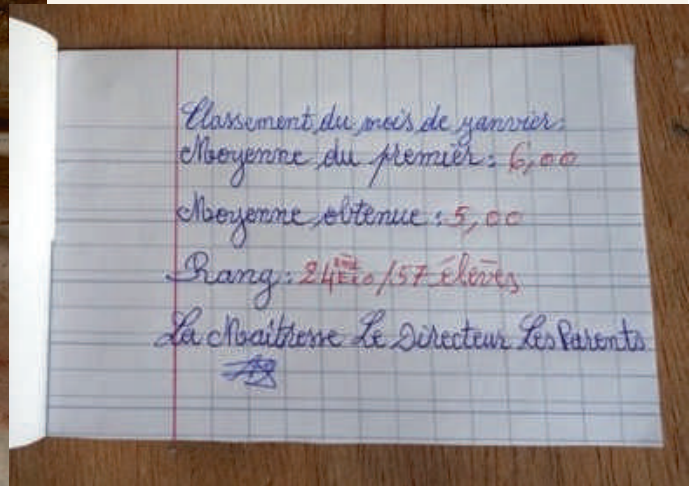 Classement du mois de janvier:
Moyenne du premier: 6,00
Moyenne obtenue: 5,00
Rang: 24ème /57 élèves
La Maîtresse Le Directeur Les Parents